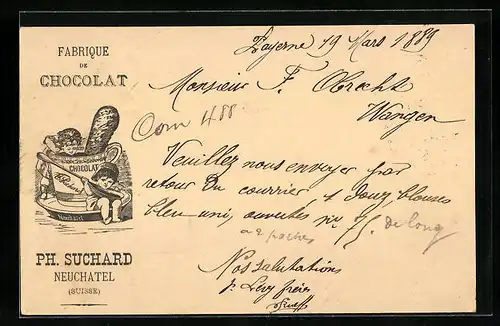 FABRIQUE
DE
CHOCOLAT
CHOCOLAT
PH. SUCHARD
NEUCHATEL
(SUISSE)
Payerne 19 Mars 1889
Monsieur F. Obrecht
Wangen
Com 488
Veuillez nous envoyer par
retour du courrier, 1 douz blouses
bleu uni, ouvertes de long
a 2 poches
Nos salutations
p. Levy frères